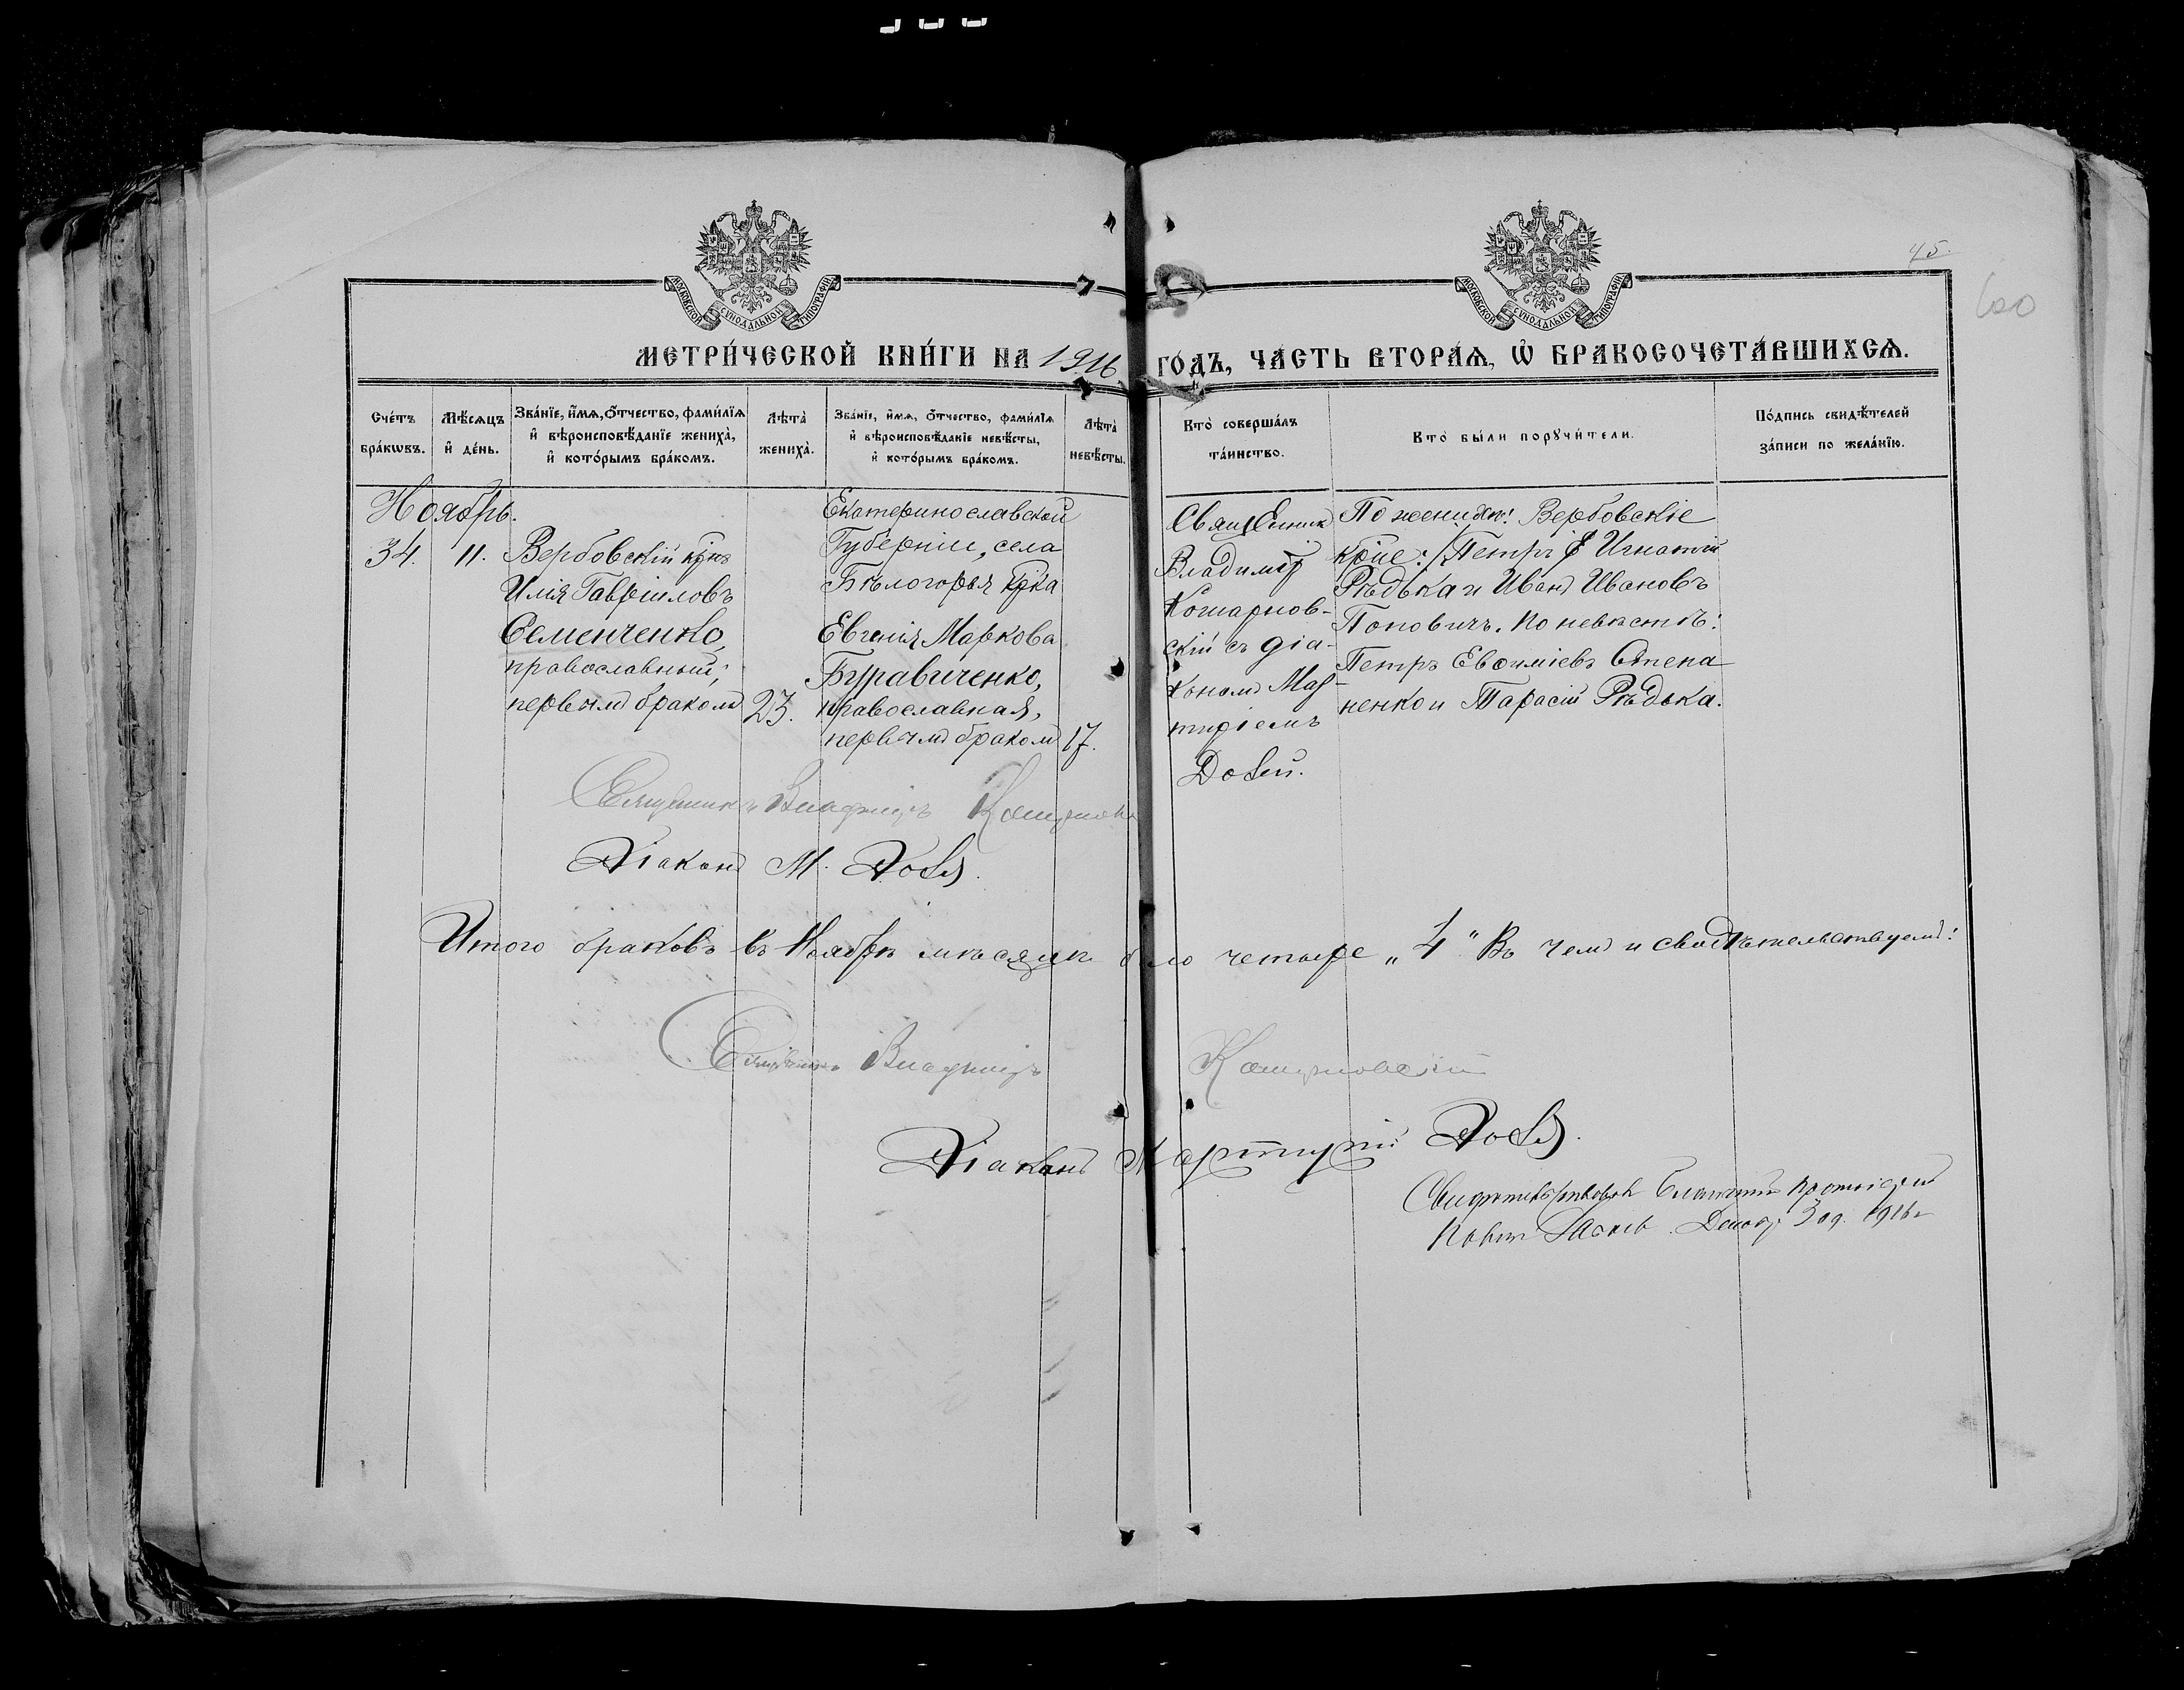 45.
600
МОСКОВСКОЙ СУНОДАЛЬНОЙ ТИПОГРАФІИ
МОСКОВСКОЙ СУНОДАЛЬНОЙ ТИПОГРАФІИ
МЕТРИ́ЧЕСКОЙ КНИ́ГИ НА 1916 ГО́ДЪ, ЧА́СТЬ ВТОРА́Ѧ, Ѡ҆ БРАКОСОЧЕТА́ВШИХСѦ.
Сче́тъ бра́кѡвъ.
Мѣ́сяцъ и҆ де́нь.
Зва́нїе, и҆́мѧ, ѻ҆́тчество, фами́лїѧ и҆ вѣроисповѣ́данїе жениха̀, и҆ кото́рымъ бра́комъ.
Лѣ́та жениха̀.
Зва́нїе, и҆́мѧ, ѻ҆́тчество, фами́лїѧ и҆ вѣроисповѣ́данїе невѣ́сты, и҆ кото́рымъ бра́комъ.
Лѣ́та невѣ́сты.
Кто̀ соверша́лъ та́инство.
Кто̀ бы́ли порꙋчи́тели.
По́дпись свидѣ́телей за́писи по жела́нїю.
Ноябрь.
34.
11.
Вербовскій крнъ
Илія Гавріиловъ
Семенченко,
православный;
первымъ бракомъ
23.
Екатеринославской
Губерніи, села
Бѣлогорья крка
Евгенія Маркова
Буравиченко,
православная,
первымъ бракомъ
17.
Священник
Владимір
Кошарнов-
скій съ діа-
кономъ Мар-
тиріемъ
Довей.
По женихѣ: Вербовскіе
крне: Петръ Игнатій
Рѣдька и Иванъ Ивановъ
Поповичъ. По невѣстѣ:
Петръ Евѳиміевъ Степа
ненко и Тарасій Рѣдька.
Священникъ Владиміръ
Діаконъ М.
Итого браковъ въ Ноябрѣ мѣсяцѣ было четыре „4" Въ чемъ и свидѣтельствуемъ:
Священникъ Владиміръ Кошарновскій
Діаконъ Мартирій
Протоіерей
Декабр. 3 д. 1916 г